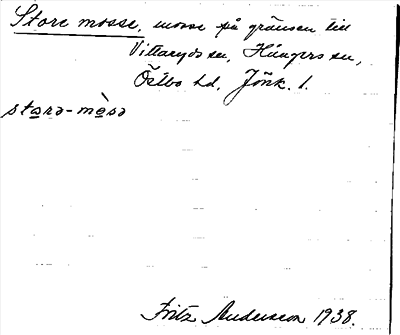 Store mosse, mosse på gränsen till
Villstads sn, Hångers sn,
Östbo hd. Jönk. l.
storə-mòsə
Fritz Anderson 1938.